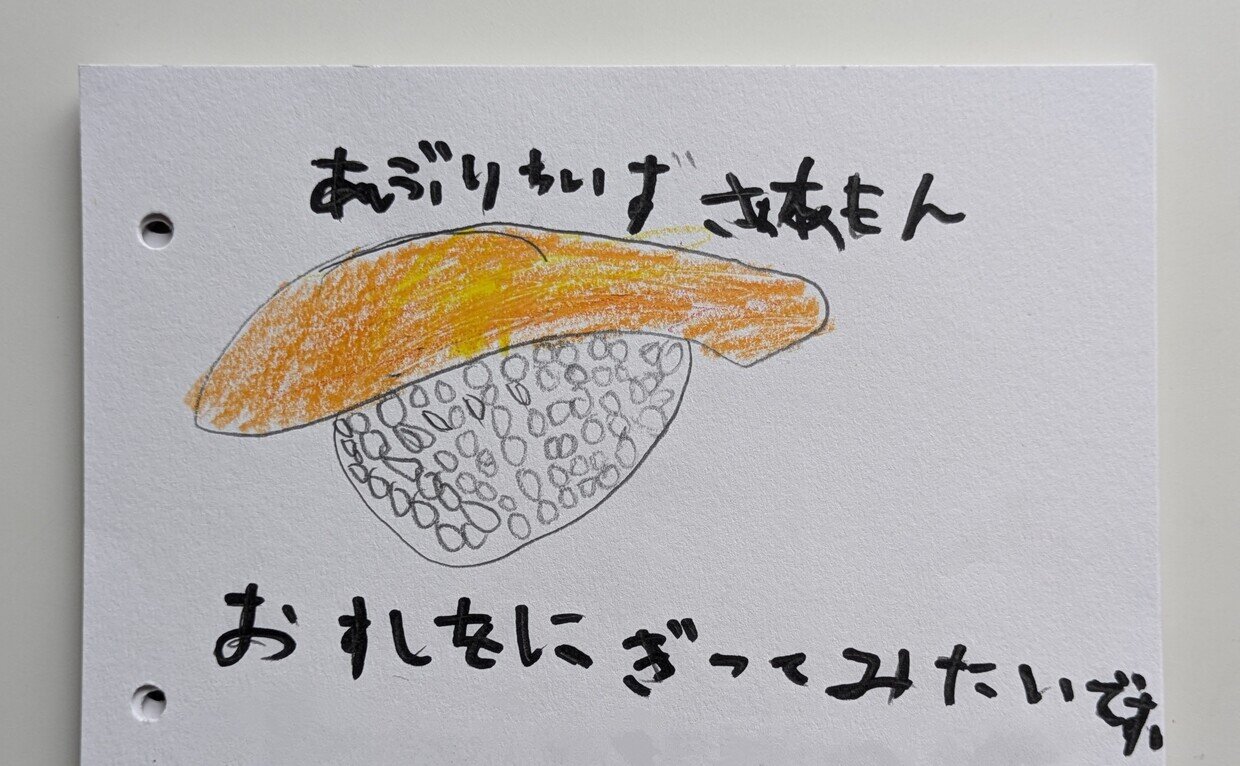 あぶりちいず さあもん
おすしをにぎってみたいです。